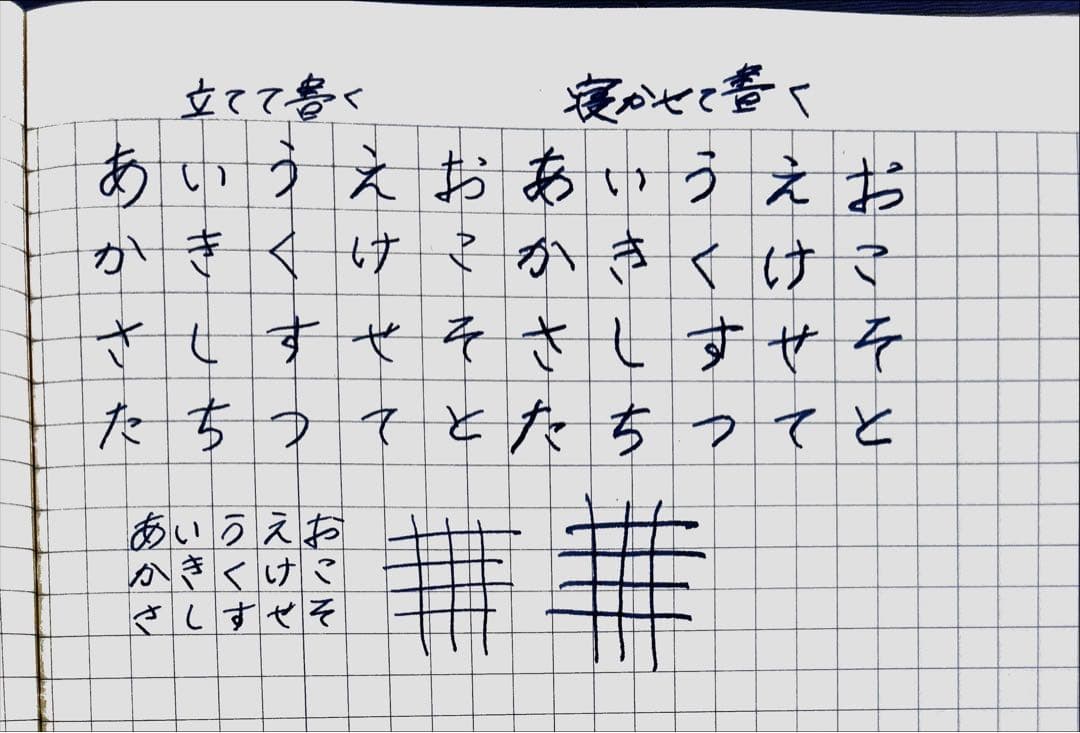 立てて書く 寝かせて書く
あいうえお あいうえお
かきくけこ かきくけこ
さしすせそ さしすせそ
たちつてと たちつてと
あいうえお
かきくけこ
さしすせそ